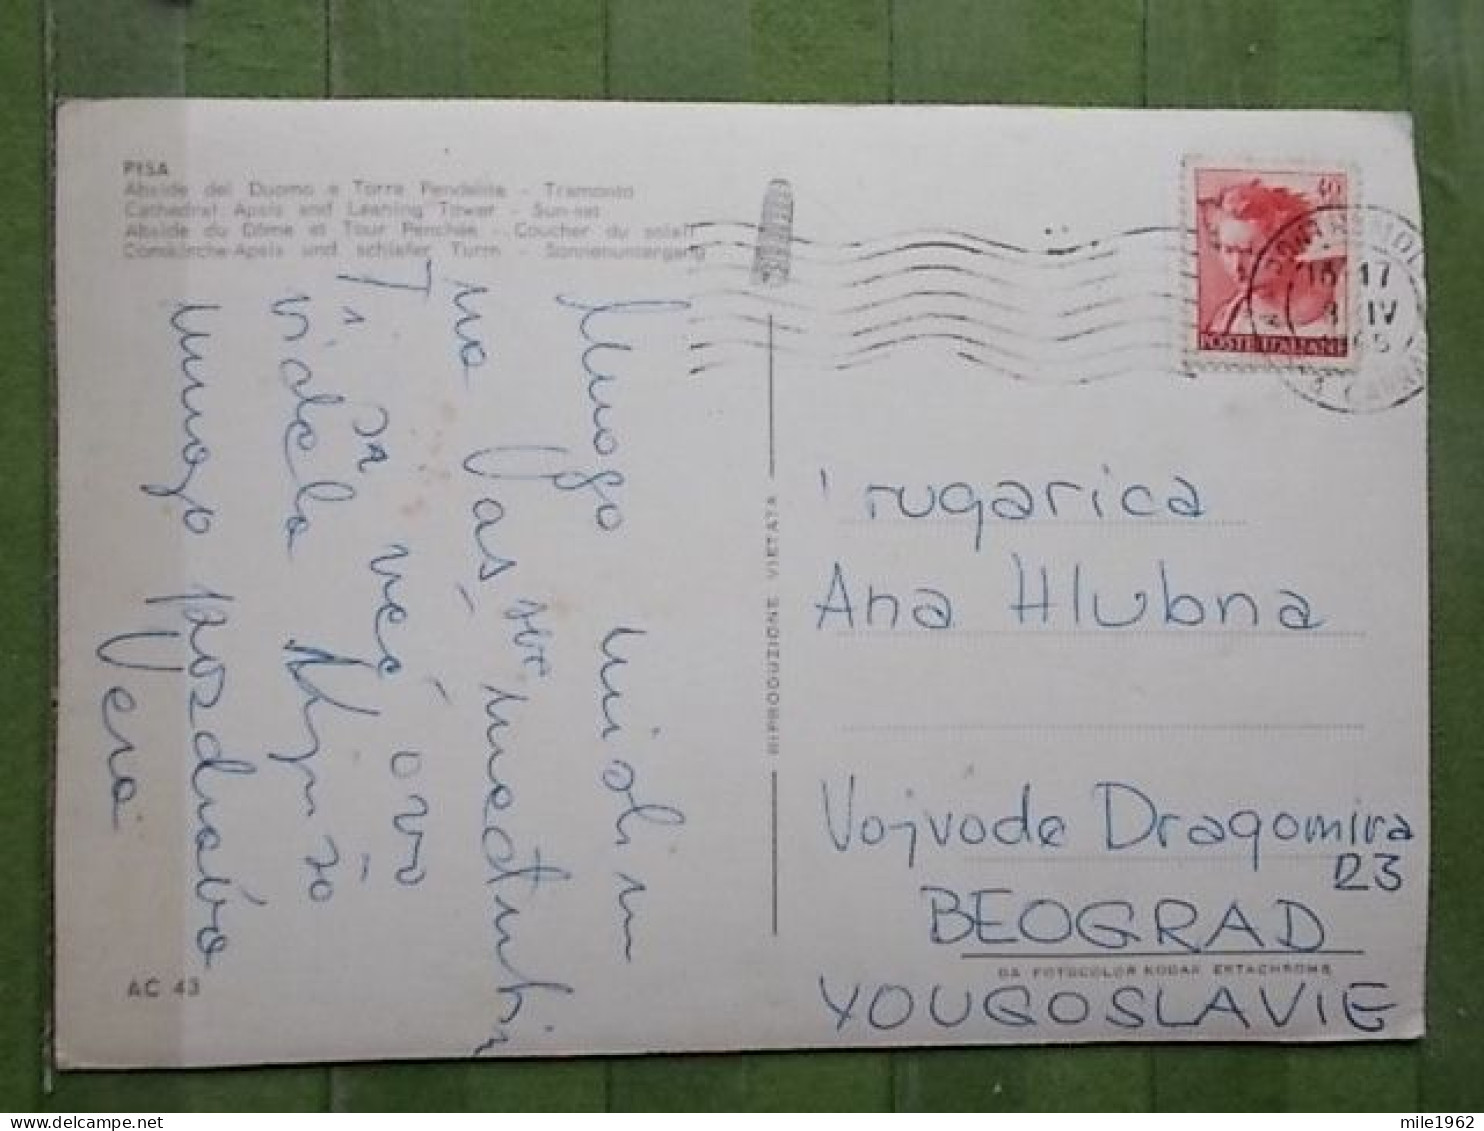 PISA
Abside del Duomo e Torre Pendente - Tramonto
Cathedral Apsis and Leaning Tower - Sun-set
Abside du Dôme et Tour Penchée - Coucher du soleil
Domkirche-Apsis und schiefer Turm - Sonnenuntergang
Mnogo mislim
na Vas, sve
Ti
da već ovo
videla
mnogo pozdrava
Vera
AC 43
RIPRODUZIONE VIETATA
40
POSTE ITALIANE
17
IV
Drugarica
Ana Hlubna
Vojvode Dragomira
23
BEOGRAD
DA FOTOCOLOR KODAK EKTACHROME
YOUGOSLAVIE
mile1962